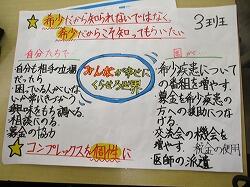 希少だから知られないではなく、
希少だからこそ知ってもらいたい
3班
自分たちで
国が
みんなが幸せに
くらせる世界
・自分も相手の立場
だったら
・困っている人がいな
いか常にきづかう
・興味をもち調べる。
・相談にのる。
・募金の協力
・希少疾患について
の番組を増やす。
・募金を希少疾患の
方への援助につな
げる。
・交友会の機会を
増やす。
税金の使用
・医師の派遣
コンプレックスを個性に